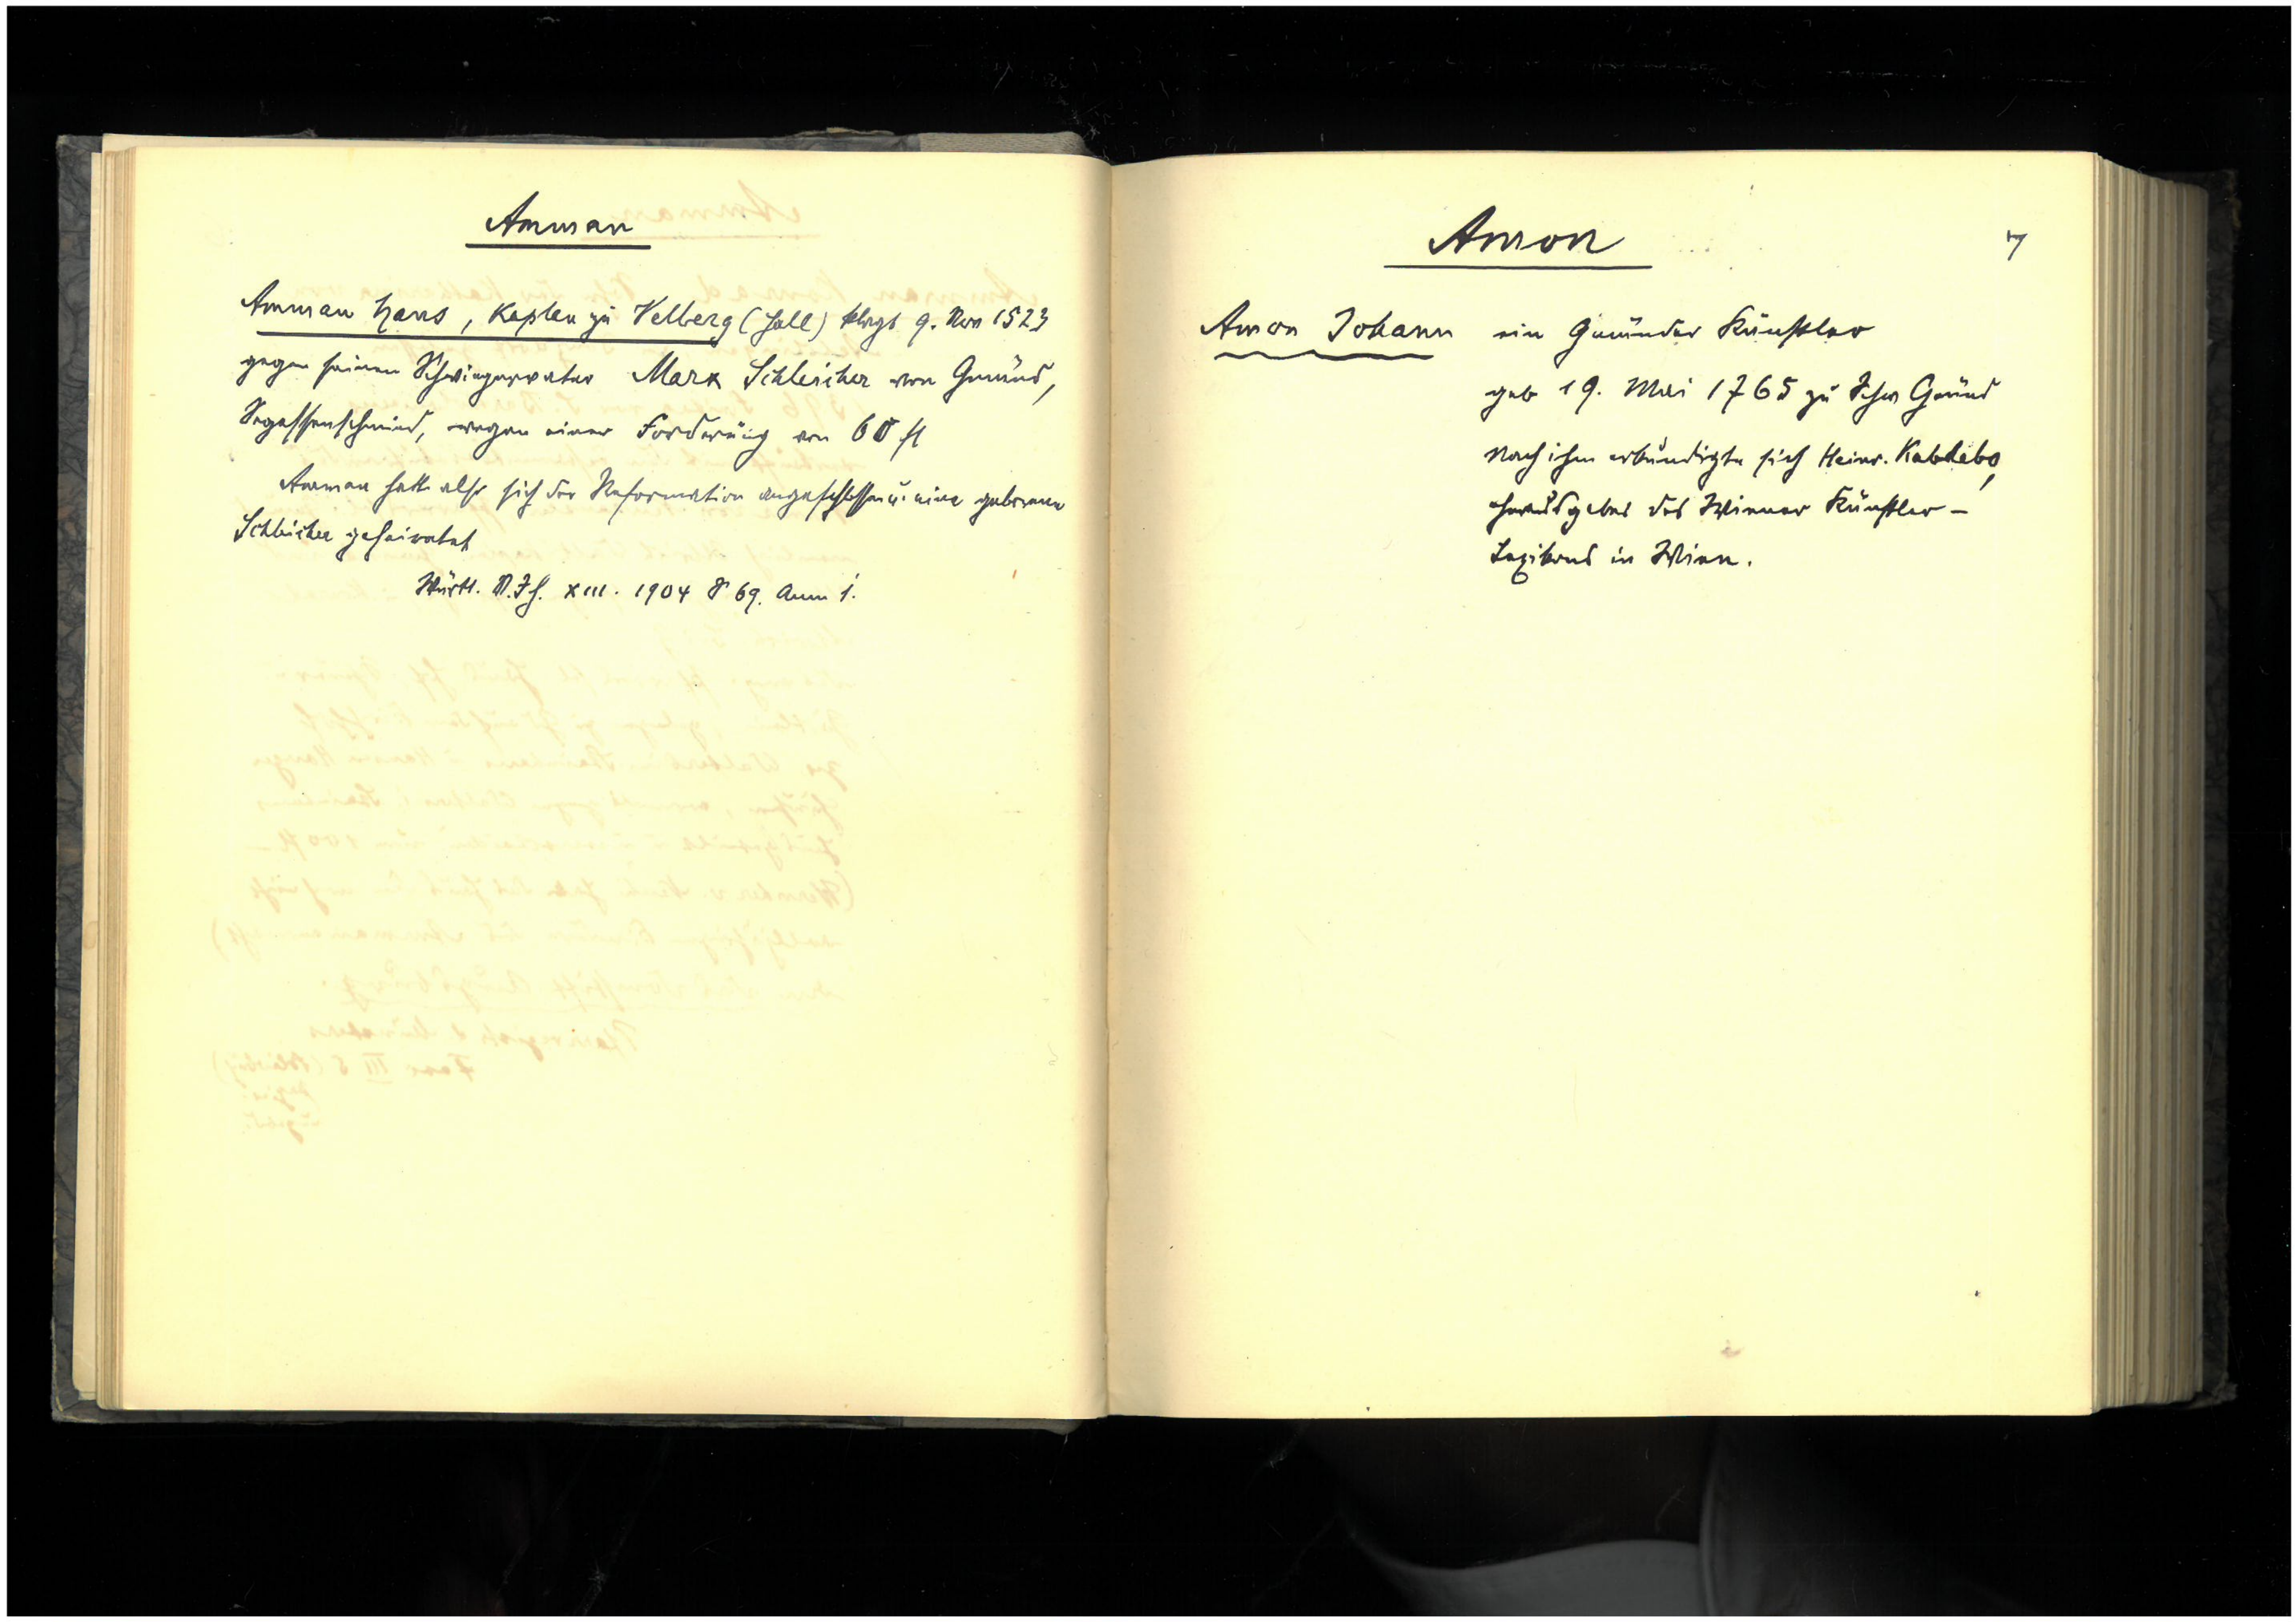 Amman
Amman Hans, Kaplan zu Vellberg (Hall) klagt 9. Nov 1523
gegen seinen Schwiegervater Marx Schleicher von Gmünd,
Segessenschmied, wegen einer Forderung von 60 fl
Amman hatte also sich der Reformation angeschlossen u. eine geborene
Schleicher geheiratet
Württ. V.Jh. XIII. 1904 S 69. Anm 1.
Amon
7
Amon Johann ein Gmünder Künstler
geb 19. Mai 1765 zu Schw Gmünd
Nach ihm erkundigte sich Heinr. Kabdebo,
Herausgeber des Wiener Künstler-
Lexikons in Wien.